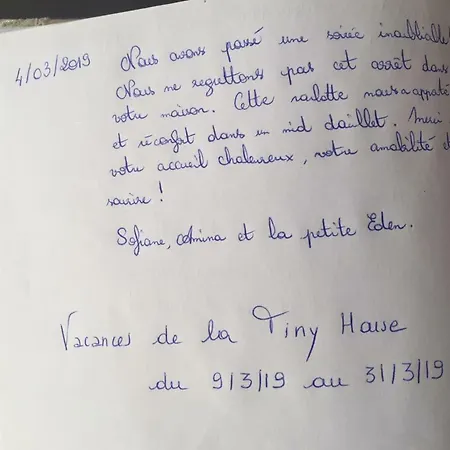 4/03/2019 Nous avons passé une soirée inoubliable!
Nous ne regrettons pas cet arrêt dans
votre maison. Cette roulotte nous a appaté
et réconfort dans un nid daillet. Merci
votre accueil chaleureux, votre amabilité et
sourire!
Sofiane, Amina et la petite Eden.
Vacances de la Tiny House
du 9/3/19 au 31/3/19